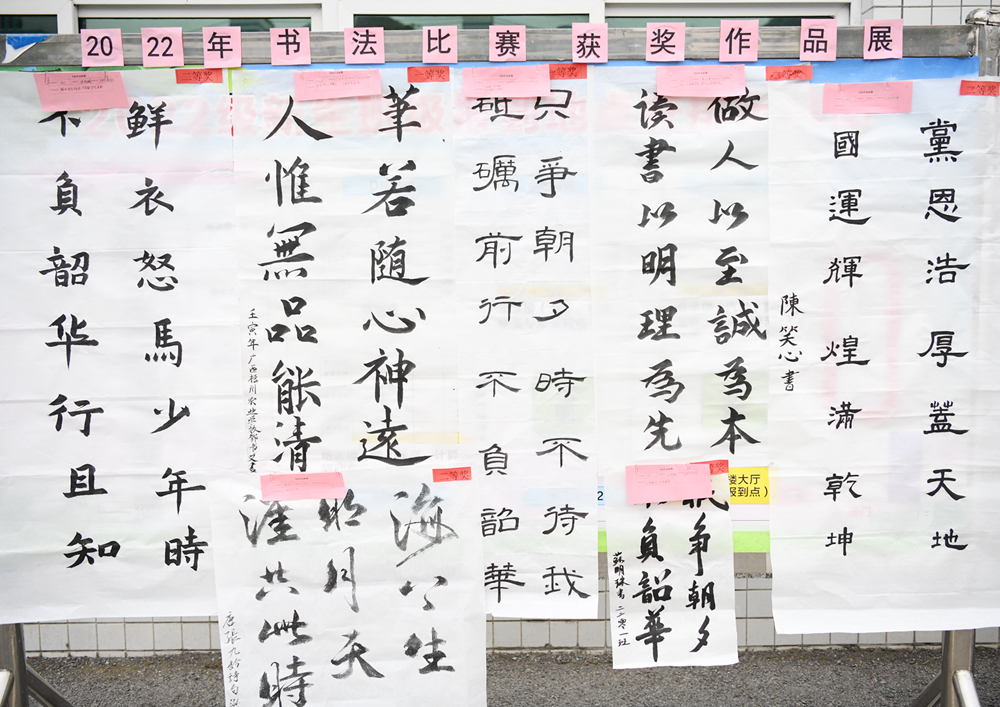 2022年书法比赛获奖作品展
二等奖
鲜衣怒馬少年時
不負韶华行且知
一等奖
筆若随心神遠
人惟無品能清
二等奖
只爭朝夕時不待我
砥礪前行不負韶華
二等奖
做人以至誠為本
读書以明理為先
陳笑心書
二等奖
黨恩浩厚蓋天地
國運輝煌滿乾坤
二等奖
海上生
明月天
涯共此時
唐張九龄詩句
二等奖
争朝夕
負韶華
蘇明珠書二二零一班
楼大厅
报到点）